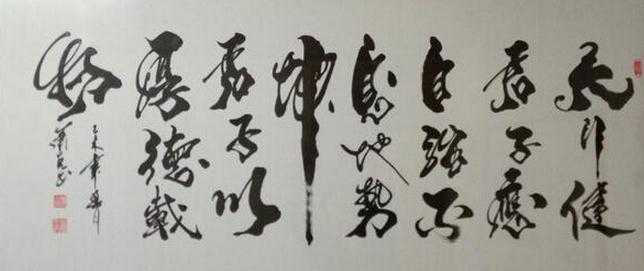 天行健
君子應
自強不
息地勢
坤
君子以
厚德載
物
乙未年